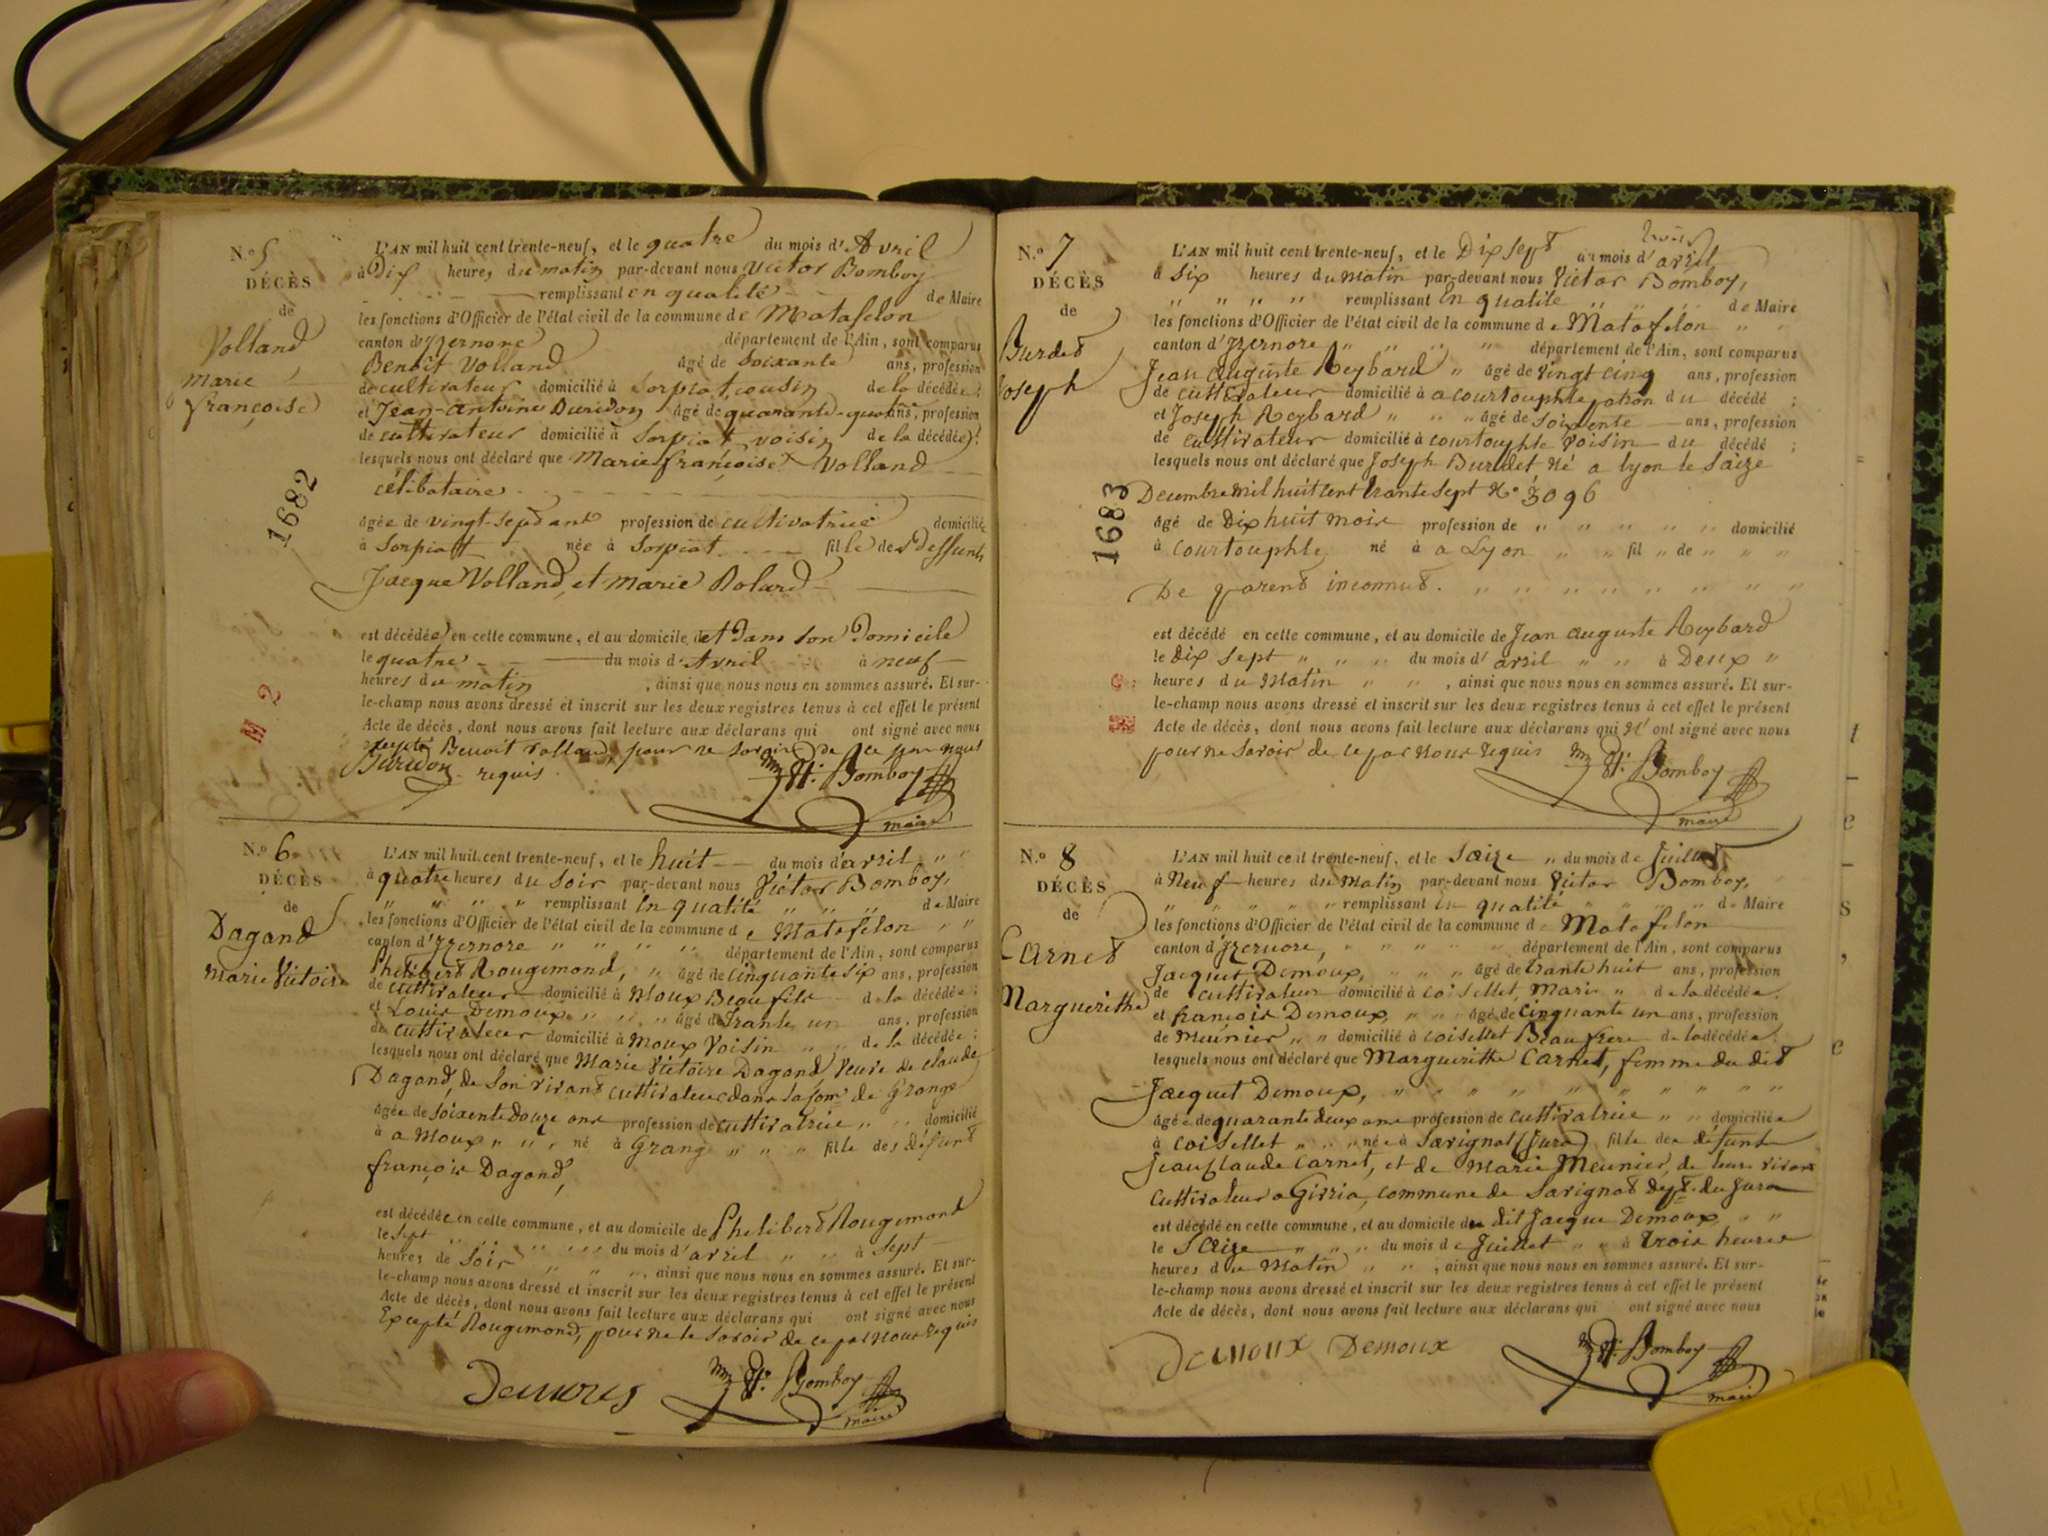 N.o 5
DÉCÈS
de
Volland
Marie
françoise
1682
M 2
L'AN mil huit cent trente-neuf, et le quatre du mois d'Avril
à Dix heures du matin par-devant nous Victor Bomboy
remplissant en qualité de Maire
les fonctions d'Officier de l'état civil de la commune de Matafelon
canton d'Izernore département de l'Ain, sont comparus
Benoit Volland âgé de soixante ans, profession
de cultivateur domicilié à Sorpiat, cousin de la décédée;
et Jean-antoine Duridon âgé de quarante-quatre ans, profession
de cultivateur domicilié à Sorpiat voisin de la décédée;
lesquels nous ont déclaré que Marie françoise Volland
célibataire
âgée de vingt-sept ans profession de cultivatrice domiciliée
à Sorpiat née à Sorpiat fille des deffunts
Jacque Volland, et Marie Rolard
est décédée en cette commune, et au domicile det dans son Domicile
le quatre du mois d'Avril à neuf
heures du matin , ainsi que nous nous en sommes assuré. Et sur-
le-champ nous avons dressé et inscrit sur les deux registres tenus à cet effet le présent
Acte de décès, dont nous avons fait lecture aux déclarans qui ont signé avec nous
excepté Benoit Volland, pour ne savoir de ce par nous
Duridon requis Bomboy
maire
N.o 6
DÉCÈS
de
Dagand
Marie Victoire
L'AN mil huit cent trente-neuf, et le huit du mois d'avril " "
à quatre heures du Soir par-devant nous Victor Bomboy,
" " " " remplissant en qualité " " " de Maire
les fonctions d'Officier de l'état civil de la commune de Matafelon " "
canton d'Izernore " " " " département de l'Ain, sont comparus
Philibert Rougemond, " âgé de cinquante six ans, profession
de cultivateur domicilié à Moux Beau fils de la décédée;
et Louis Demoux " " " âgé de trante un ans, profession
de cultivateur domicilié à Moux Voisin " " de la décédée;
lesquels nous ont déclaré que Marie Victoire Dagand Veuve de claude
Dagand, de Son vivant cultivateur dans la Com.e de Grange
âgée de Soixente Douze ans profession de cultivatrice " " domicilié
à a Moux " " , né à Grange " " " fille des défunt
françois Dagand,
est décédée en cette commune, et au domicile de Philibert Rougemond
le sept " " " " " du mois d'avril " " à Sept
heures de Soir " " " , ainsi que nous nous en sommes assuré. Et sur-
le-champ nous avons dressé et inscrit sur les deux registres tenus à cet effet le présent
Acte de décès, dont nous avons fait lecture aux déclarans qui ont signé avec nous
Excepté Rougemond, pour ne le Savoir de ce par nous requis
Demoux Bomboy
maire
N.o 7
DÉCÈS
de
Burdet
Joseph
1683
L'AN mil huit cent trente-neuf, et le Dix sept au mois d'avril
à Six heures du Matin par-devant nous Victor Bomboy,
" " " " remplissant en qualité " " " de Maire
les fonctions d'Officier de l'état civil de la commune de Matafelon " "
canton d'Izernore " " " " département de l'Ain, sont comparus
Jean auguste Reybard " âgé de vingt cinq ans, profession
de cultivateur domicilié à a courtouphle patron du décédé ;
et Joseph Reybard " " " âgé de Soixente ans, profession
de cultivateur domicilié à courtouphle voisin du décédé ;
lesquels nous ont déclaré que Joseph Burdet né a lyon le Saize
Decembre mil huit cent trante sept N.o 3096
âgé de Dix huit mois profession de " " " " " domicilié
à courtouphle né à a Lyon " " fil " de " " "
De parent inconnut. " " " " " " " "
est décédé en cette commune, et au domicile de Jean auguste Reybard
le dix sept " " " du mois d'avril " " à Deux "
heures du Matin " " , ainsi que nous nous en sommes assuré. Et sur-
le-champ nous avons dressé et inscrit sur les deux registres tenus à cet effet le présent
Acte de décès, dont nous avons fait lecture aux déclarans qui N'ont signé avec nous
pour ne Savoir de ce par nous requis Bomboy
maire
N.o 8
DÉCÈS
de
Carnet
Marguerithe
L'AN mil huit cent trente-neuf, et le Saize " du mois de Juillet
à Neuf heures du Matin par-devant nous Victor Bomboy,
" " " " " remplissant en qualité " " " de Maire
les fonctions d'Officier de l'état civil de la commune de Matafelon
canton d'Izernore, " " " " " département de l'Ain, sont comparus
Jacquet Demoux, " " " âgé de trante huit ans, profession
de cultivateur domicilié à coisellet, Mari " de la décédée.
et françois Demoux, " " âgé de Cinquante un ans, profession
de Meunier " " domicilié à coisellet Beau frere de la décédée
lesquels nous ont déclaré que Marguerithe Carnet, femme du dit
Jacquet Demoux, " " " " " " " " "
âgée de quarante deux ans profession de cultivatrice " " domiciliée
à coisellet " " " née à Savignat (Jura) fille des défunts
Jean Claude Carnet, et de Marie Meunier, de leur vivant
cultivateur a Girria, commune de Savignat dept. du Jura
est décédé en cette commune, et au domicile du dit Jacque Demoux " "
le Saize " " " du mois de Juillet " " à trois heures
heures du Matin " " , ainsi que nous nous en sommes assuré. Et sur-
le-champ nous avons dressé et inscrit sur les deux registres tenus à cet effet le présent
Acte de décès, dont nous avons fait lecture aux déclarans qui ont signé avec nous
Demoux Demoux Bomboy
maire